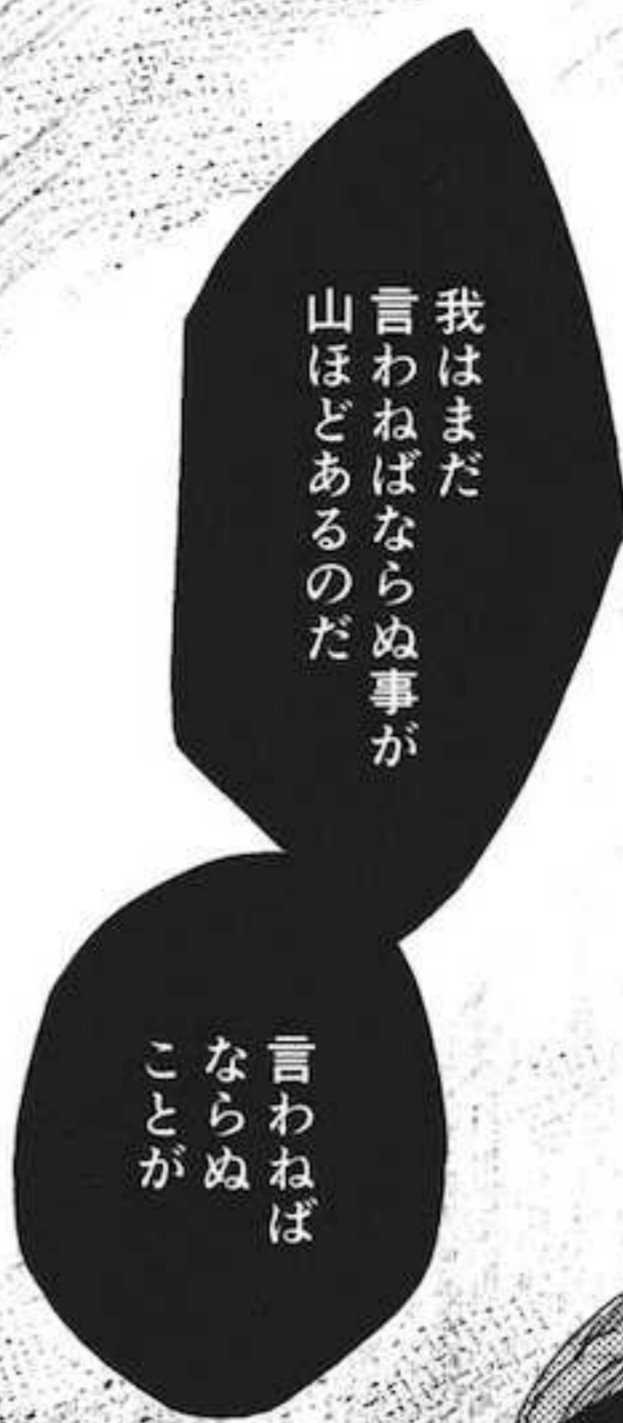 我はまだ
言わねばならぬ事が
山ほどあるのだ
言わねば
ならぬ
ことが